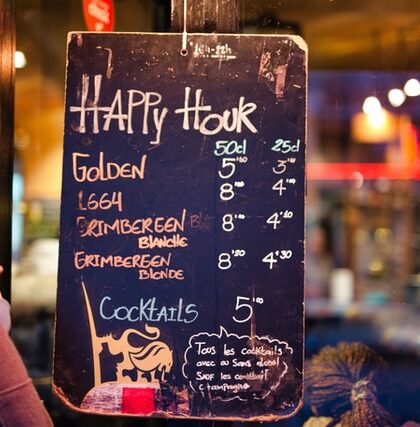 16h-22h
HAPPY HOUR
50cl 25cl
GOLDEN 5 3
1664 8 4
GRIMBERGEN BLANCHE 8 4
GRIMBERGEN BLONDE 8'20 4'30
COCKTAILS 5
Tous les cocktails
avec ou sans alcool
SAUF les cocktail